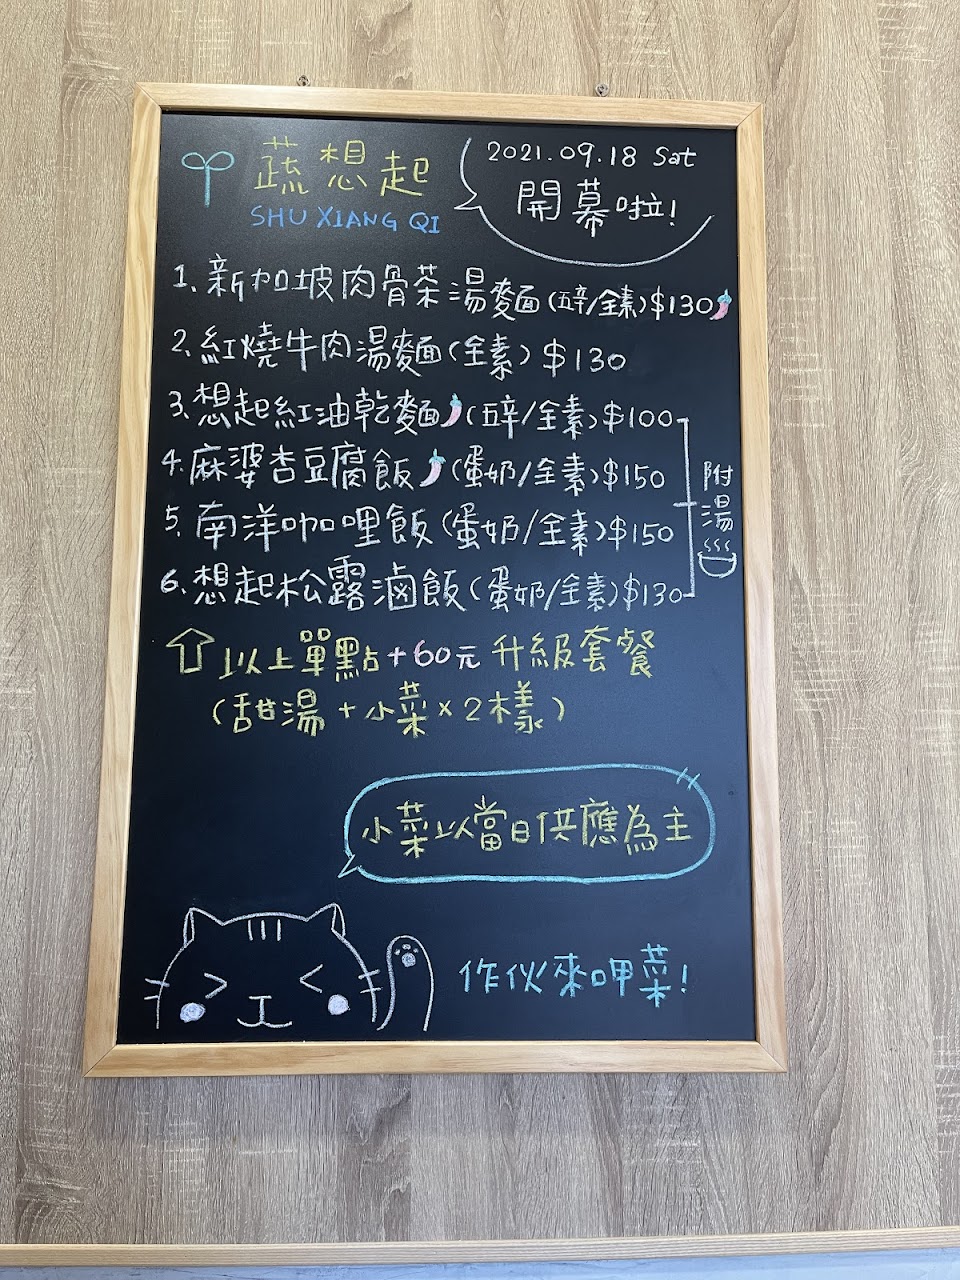 蔬想起
SHU XIANG QI
2021.09.18 Sat
開幕啦!
1.新加坡肉骨茶湯麵(五辛/全素)$130
2.紅燒牛肉湯麵(全素)$130
3.想起紅油乾麵(五辛/全素)$100
4.麻婆杏豆腐飯(蛋奶/全素)$150
5.南洋咖哩飯(蛋奶/全素)$150
6.想起松露滷飯(蛋奶/全素)$130
附湯
以上單點+60元升級套餐
(甜湯+小菜x2樣)
小菜以當日供應為主
作伙來呷菜!